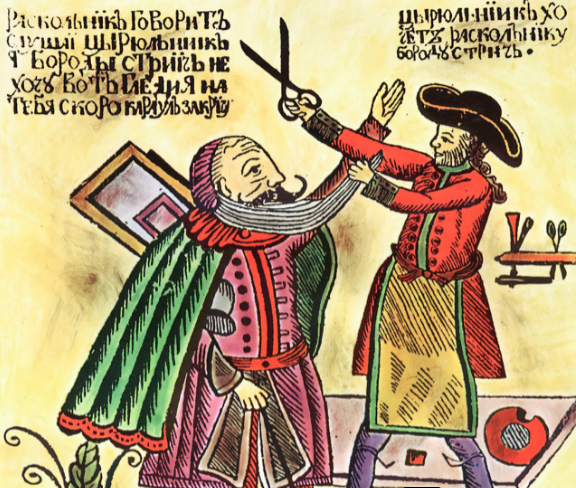 РАСКОЛЬНЇКЪ ГОВОРИТЪ
СЛУШАЇ ЦЫРЮЛЬНИКЪ
Я БОРОДЫ СТРИЧЬ НЕ
ХОЧУ ВОТЪ ГЛЕДИЯ НА
ТЕБЯ СКОРО КАРАУЛЪ ЗАКРИЧУ
ЦЫРЮЛЬНЇКЪ ХО
ЧЕТЪ РАСКОЛЬНІКУ
БОРОДУ СТРИЧЬ.